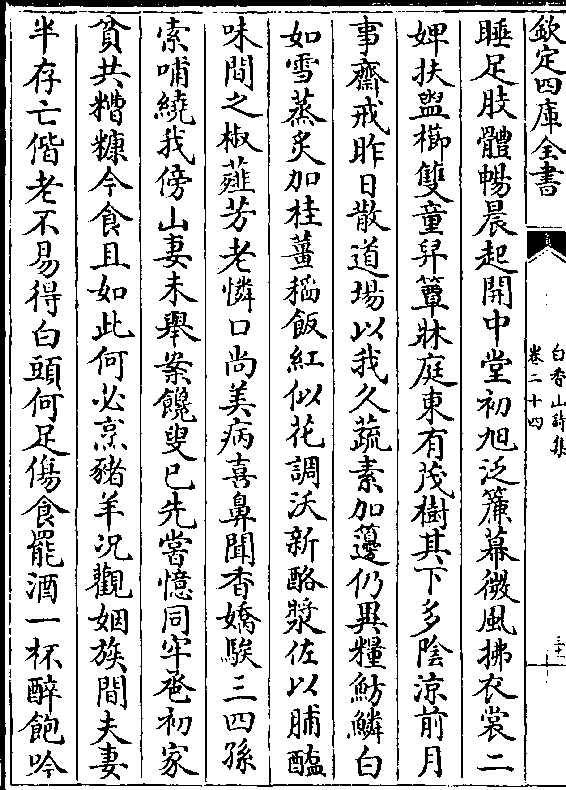 欽定四庫全書
白香山詩集
卷二十四
三十一
睡足肢體暢晨起開中堂初旭泛簾幕微風拂衣裳二
婢扶盥櫛雙童舁簟牀庭東有茂樹其下多陰涼前月
事齋戒昨日散道場以我久蔬素加籩仍異糧魴鱗白
如雪蒸炙加桂薑稻飯紅似花調沃新酪漿佐以脯醢
味間之椒薤芳老憐口尚美病喜鼻聞香嬌騃三四孫
索哺繞我傍山妻未舉案饞叟已先嘗憶同牢卺初家
貧共糟糠今食且如此何必烹豬羊况觀姻族間夫妻
半存亡偕老不易得白頭何足傷食罷酒一杯醉飽吟